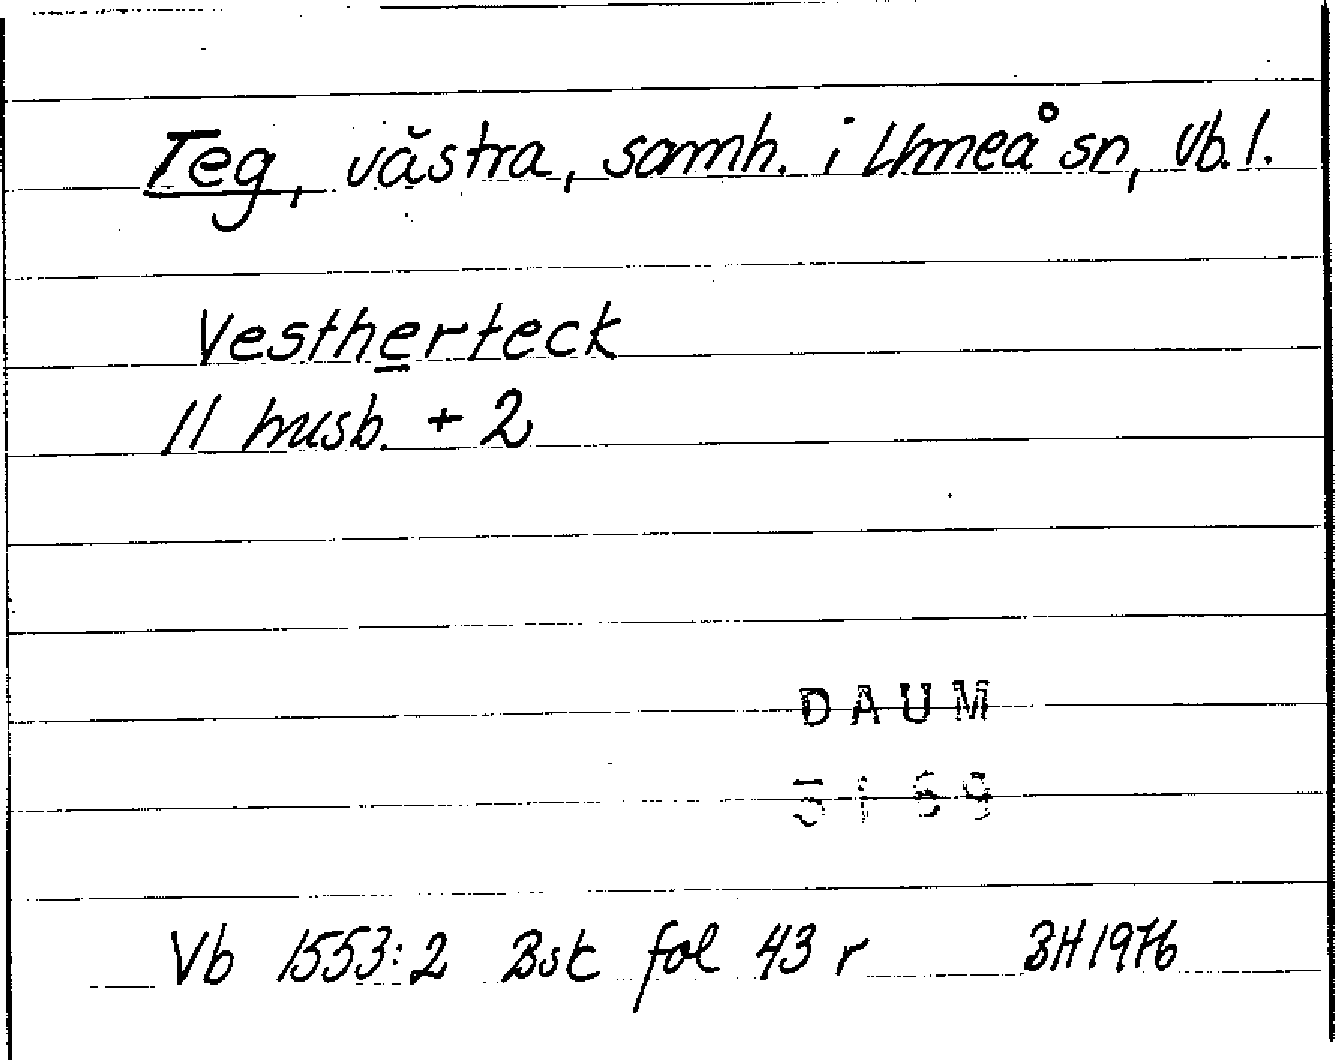 Teg, västra, samh. i Umeå sn, Vb. l.
Vestherteck
11 husb. + 2
DAUM
5169
Vb 1553:2 Bsk fol 43 r BH 1976